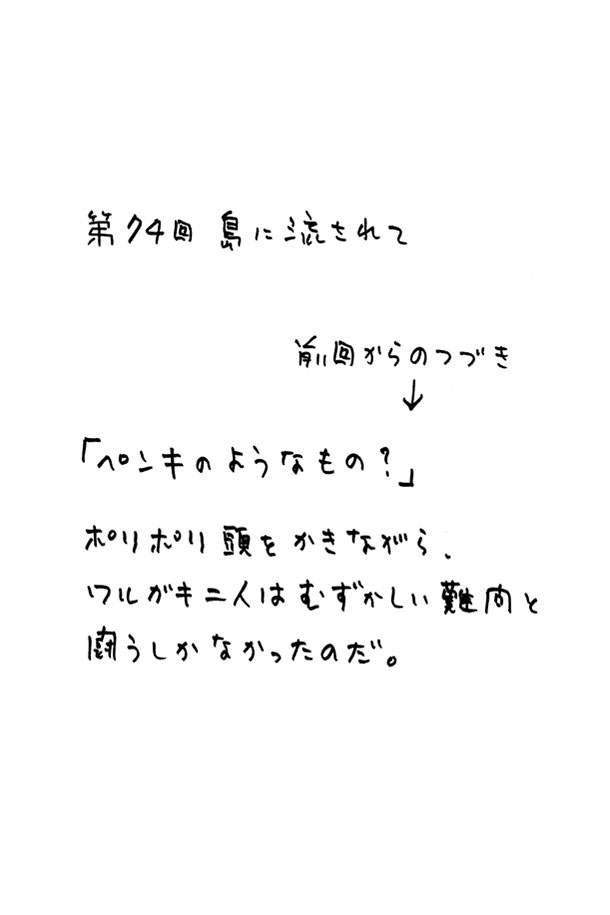 第74回 島に流されて
前回からのつづき
↓
「ペンキのようなもの?」
ポリポリ頭をかきながら、
ワルガキ二人はむずかしい難問と
闘うしかなかったのだ。